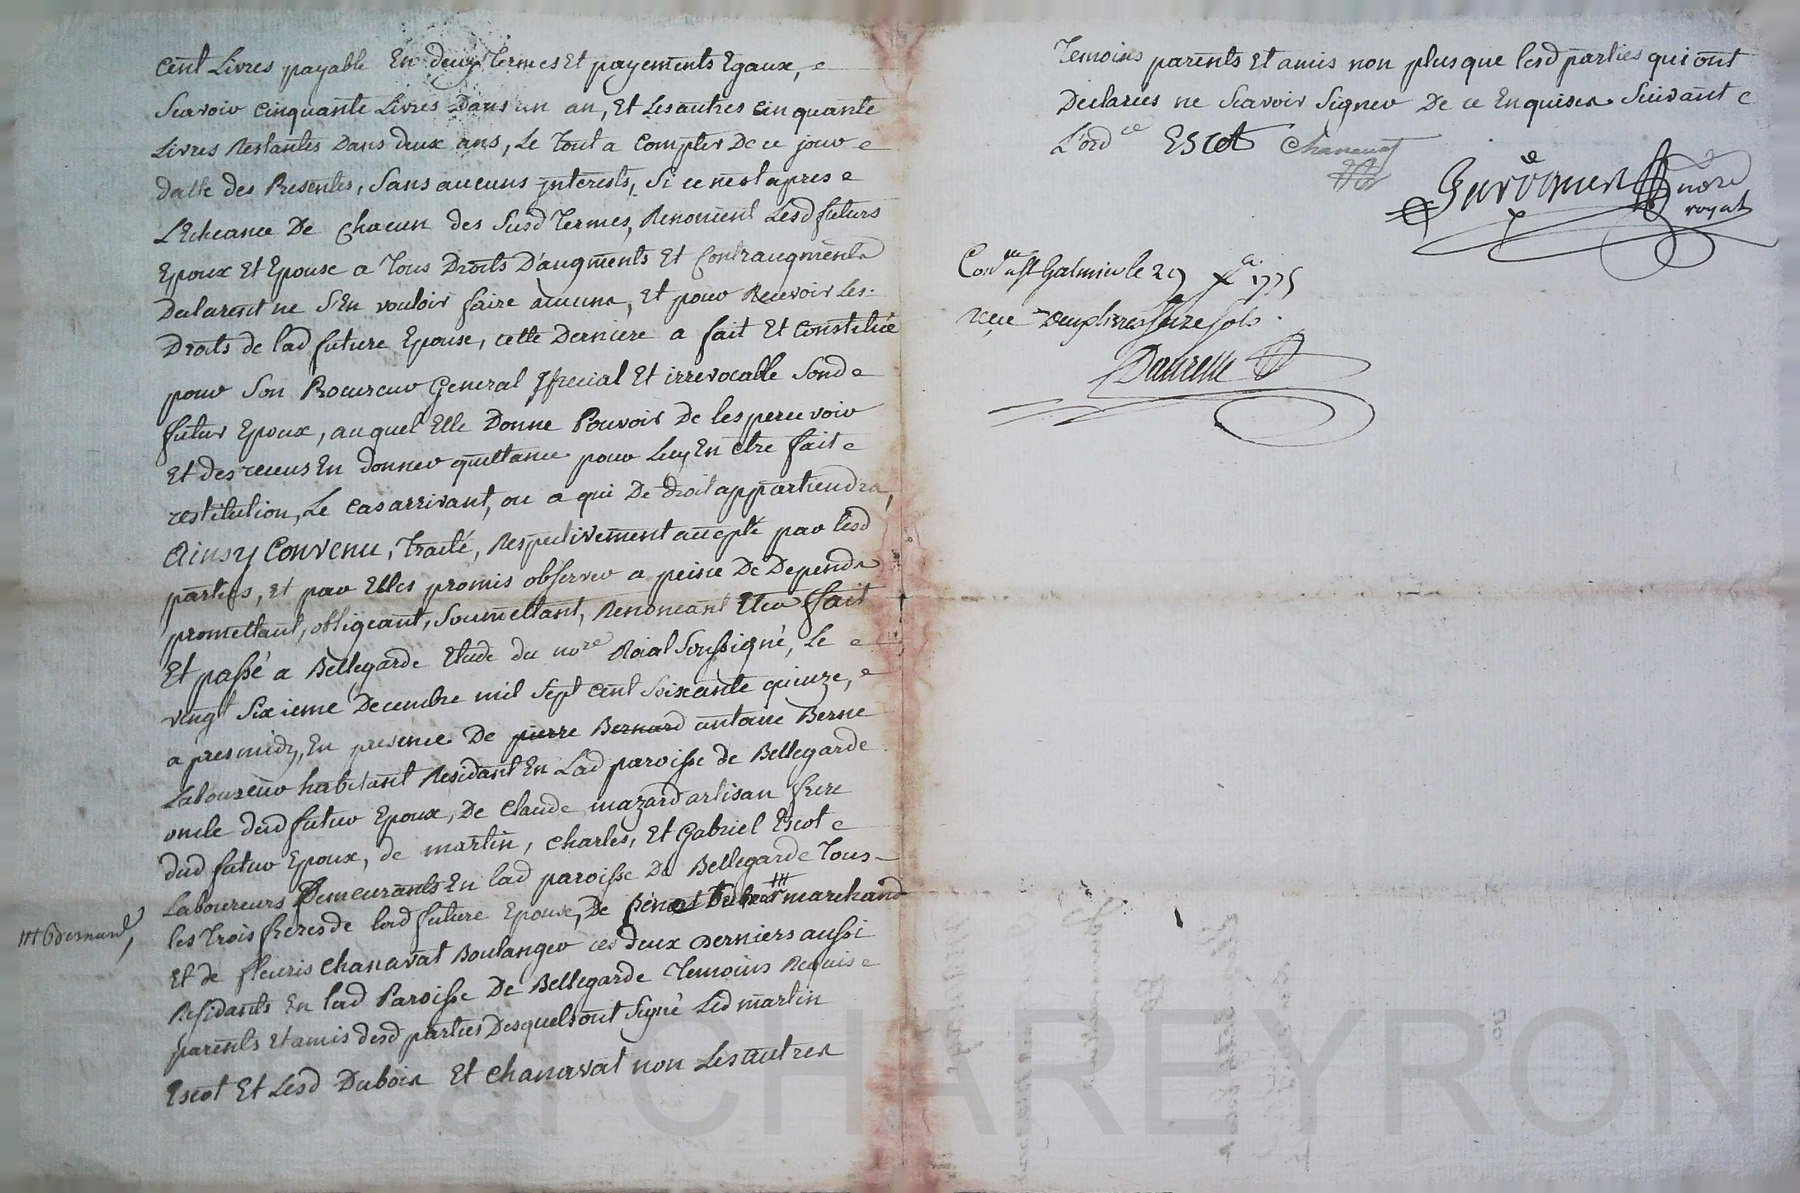 cent Livres payable En deux Termes Et payements Egaux,
Scavoir cinquante Livres Dans un an, Et Les autres cinquante
Livres Restantes Dans deux ans, Le Tout a Compter De ce jour
datte des Presentes, Sans aucuns jnterests, Si ce nest apres
L'Echeance De Chacun des Susd Termes, Renoncent Lesd futurs
Epoux Et Epouse a Tous Droits D'augments Et Contraugments
Declarent ne S'En vouloir faire aucuns, Et pour Recevoir Les
Droits de lad future Epouse, cette Derniere a fait Et Constitué
pour Son Procureur General Special Et irrevocable Sond
futur Epoux, auquel Elle Donne Pouvoir De les percevoir
Et des recus En donner quittance pour Luy En etre fait
restitution, Le cas arrivant, ou a qui De droit appartiendra,
Ainsy Convenu, Traité, Respectivement accepté par lesd
parties, Et par Elles promis observer a peine De Depends
promettant, obligeant, Soumettant, Renoncant Etca fait
Et passé a Bellegarde Etude du nore Roial Soussigné, Le
vingt Sixieme Decembre mil Sept cent Soixante quinze,
apres midy, En presence De pierre Bernard antoine Berne
Laboureur habitant Residant En Lad paroisse de Bellegarde
oncle dud futur Epoux, De Claude mazard artisan frere
dud futur Epoux, de martin, Charles, Et Gabriel Escot
Laboureurs Demeurants En lad paroisse De Bellegarde Tous
les Trois freres de lad future Epouse, De Benoit marchand
Et de fleuris Chanavat Boulanger ces deux Derniers aussi
Residants En lad Paroisse De Bellegarde Temoins Requis
parents Et amis desd parties Desquels ont Signé Led martin
Escot Et Lesd Dubois Et Chanavat non Les autres
Temoins parents Et amis non plus que lesd parties qui ont
Declarees ne Scavoir Signer De ce Enquises Suivant
L'ordce Escot Chanavat
nore
royal
St Galmier le 29 Xbre 1775
reçu Deux livres Seize sols.
Pascal CHARLEYRON